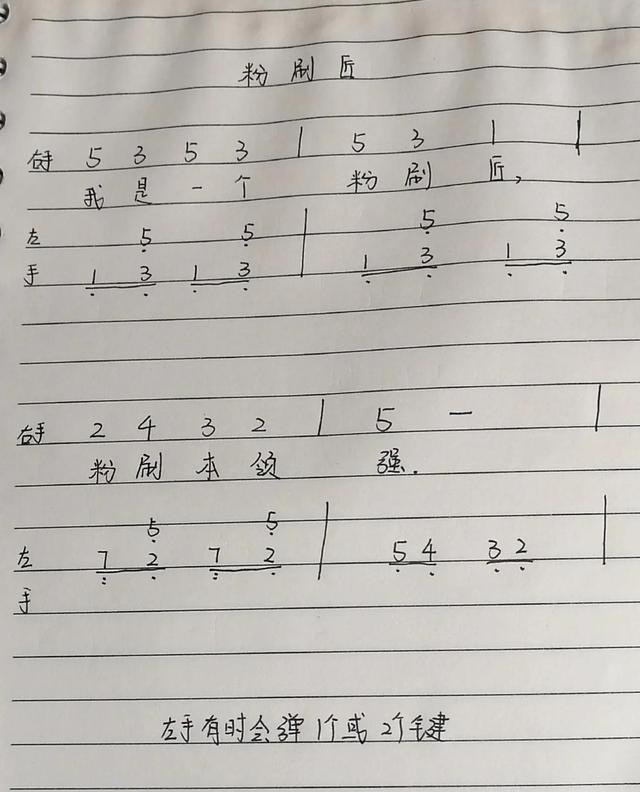 粉刷匠
右手 5 3 5 3 | 5 3 1 |
我是一个 粉刷匠,
左 5 5 | 5 5
手 1 3 1 3 | 1 3 1 3
右手 2 4 3 2 | 5 — |
粉刷本领 强.
5 5
左 7 2 7 2 | 5 4 3 2 |
手
左手有时会弹1个或2个键